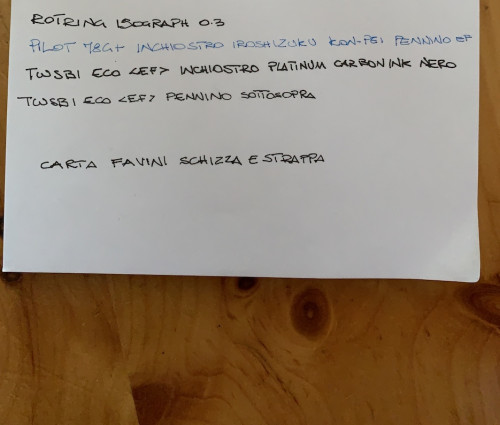 ROTRING ISOGRAPH 0.3
PILOT 78G+ INCHIOSTRO IROSHIZUKU KON-PEI PENNINO EF
TWSBI ECO <EF> INCHIOSTRO PLATINUM CARBON INK NERO
TWSBI ECO <EF> PENNINO SOTTOSOPRA
CARTA FAVINI SCHIZZA E STRAPPA